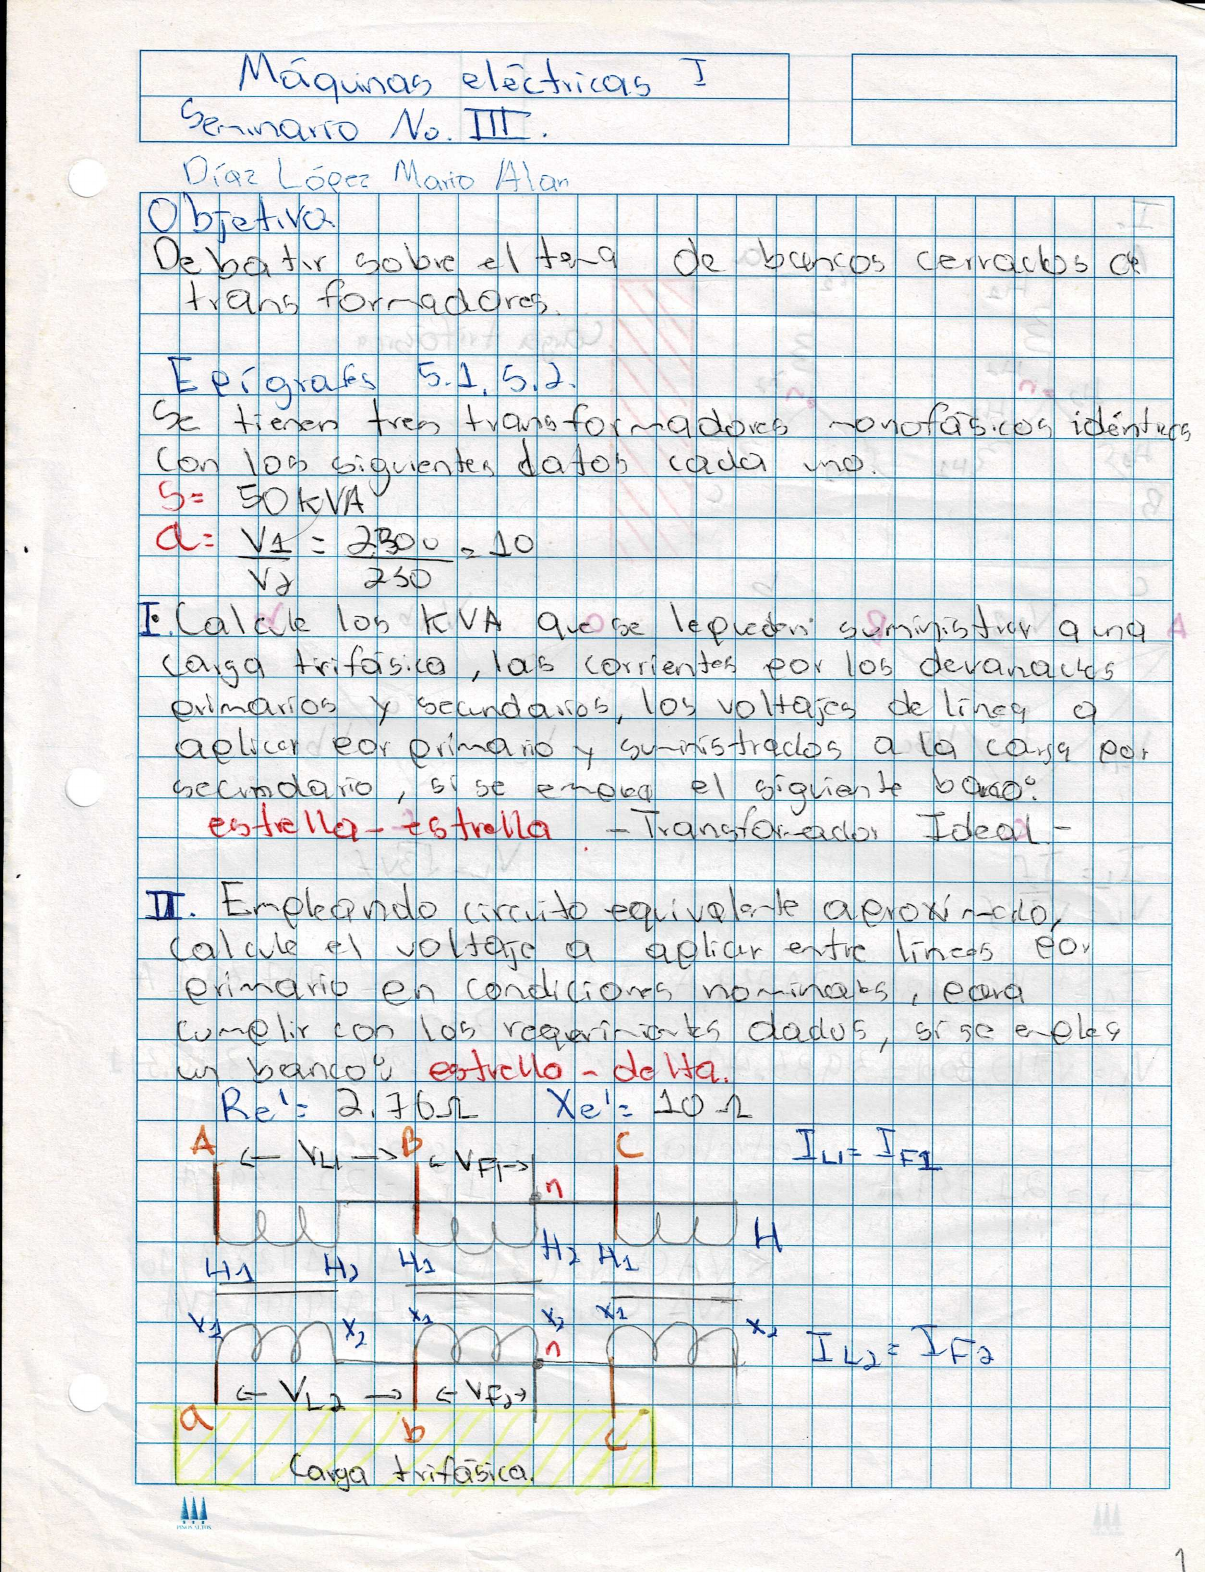 Máquinas eléctricas I
Seminario No. III.
Díaz López Mario Alan
Objetivo
Debatir sobre el tema de bancos cerrados de
transformadores.
Epígrafes 5.1, 5.2.
Se tienen tres transformadores monofásicos idénticos
con los siguientes datos cada uno.
S= 50 KVA
a= V1/V2 = 2300/230 = 10
I. Calcule los KVA que se le pueden suministrar a una
carga trifásica, las corrientes por los devanados
primarios y secundarios, los voltajes de línea a
aplicar por primario y suministrados a la carga por
secundario, si se emplea el siguiente banco:
estrella-estrella - Transformador Ideal -
II. Empleando circuito equivalente aproximado,
calcule el voltaje a aplicar entre líneas por
primario en condiciones nominales, para
cumplir con los requerimientos dados, si se emplea
un banco: estrella - delta.
Re'= 2.76Ω Xe'= 10 Ω
A ← VL1 → B ← VF1 → C IL1= IF1
n
H
H1 H2 H1 H2 H1
X1 X2 X1 X2 X1 X2
n
IL2= IF2
← VL2 → ← VF2 →
a b c
Carga trifásica.
PINOS ALTOS
1